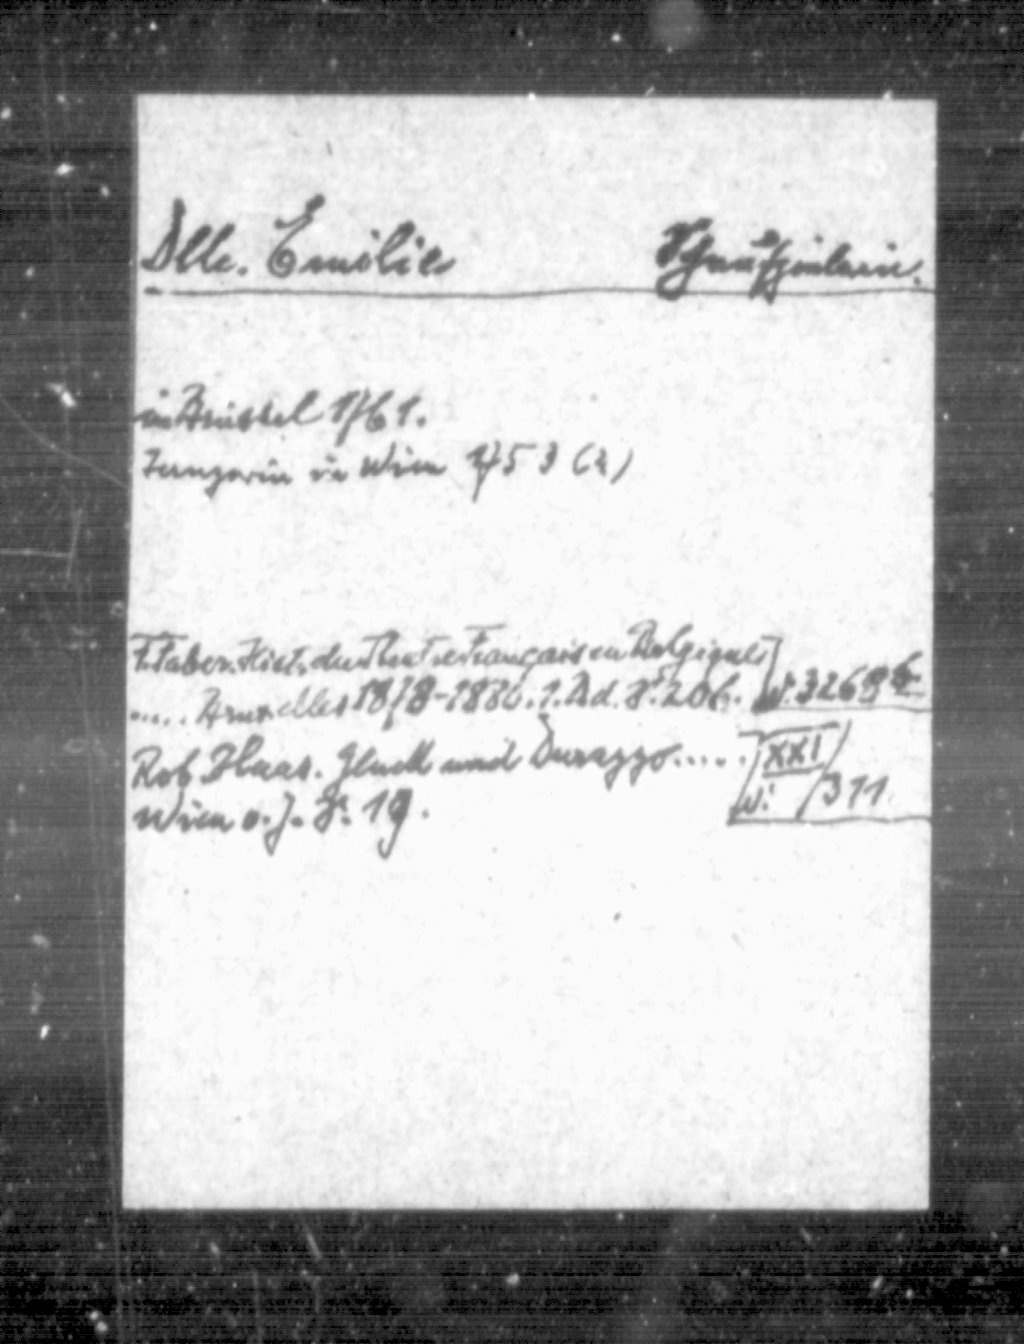 Dlle. Emilie Schauspielerin.
in Brüssel 1761.
Tänzerin in Wien 1753 (2)
F. Faber. Hist. du Theatre Français en Belgique
..... Bruxelles 1878-1880. 1. Bd. S. 206.
Rob. Haas. Gluck und Durazzo.....
XXI
Wien o. J. S. 19.
311